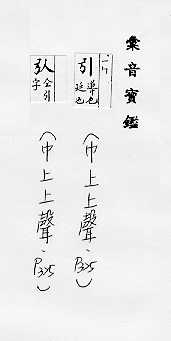 彙音寶鑑
引 導也 延也
(巾上上聲、P325)
弘 仝引字
(巾上上聲、P325)